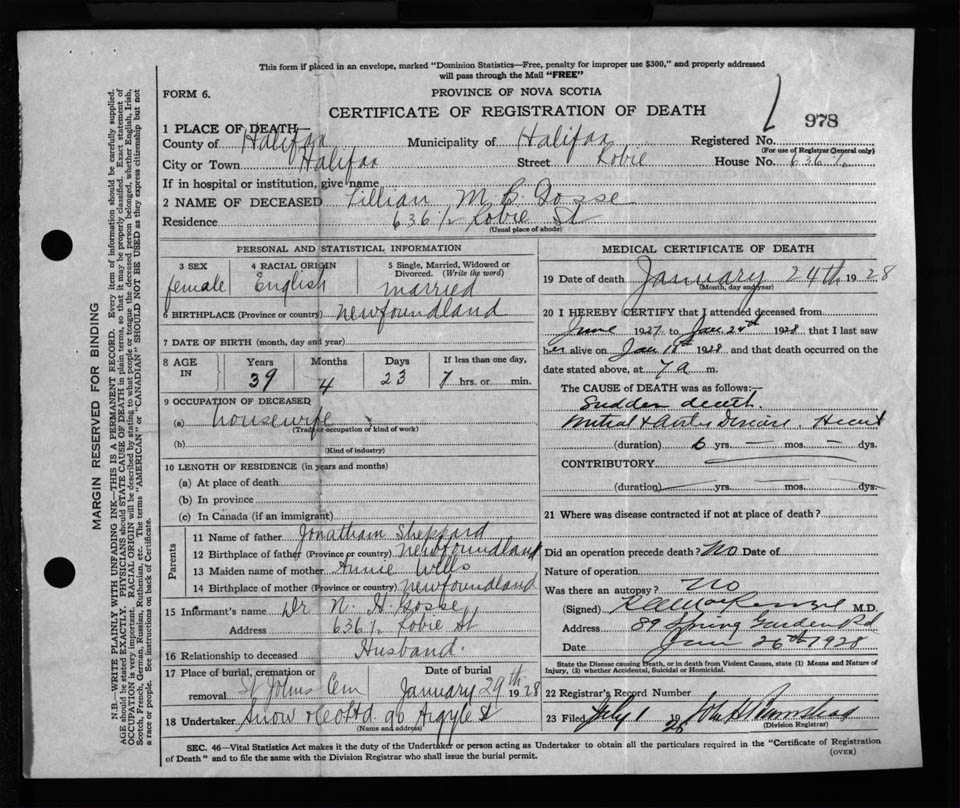 This form if placed in an envelope, marked "Dominion Statistics—Free, penalty for improper use $300," and properly addressed
will pass through the Mail "FREE"
FORM 6.
PROVINCE OF NOVA SCOTIA
CERTIFICATE OF REGISTRATION OF DEATH
978
1 PLACE OF DEATH—
County of Halifax Municipality of Halifax Registered No.
(For use of Registrar General only)
City or Town Halifax Street Robie House No. 636½
If in hospital or institution, give name
2 NAME OF DECEASED Lillian M. B. Gosse
Residence 636½ Robie St
(Usual place of abode)
PERSONAL AND STATISTICAL INFORMATION
3 SEX 4 RACIAL ORIGIN 5 Single, Married, Widowed or
Divorced. (Write the word)
female English married
6 BIRTHPLACE (Province or country) Newfoundland
7 DATE OF BIRTH (month, day and year)
8 AGE IN Years Months Days If less than one day,
39 4 23 hrs. or min.
9 OCCUPATION OF DECEASED
(a) housewife
(Trade, occupation or kind of work)
(b)
(Kind of industry)
10 LENGTH OF RESIDENCE (in years and months)
(a) At place of death
(b) In province
(c) In Canada (if an immigrant)
Parents
11 Name of father Jonatham Sheppard
12 Birthplace of father (Province or country) Newfoundland
13 Maiden name of mother Annie Wells
14 Birthplace of mother (Province or country) Newfoundland
15 Informant's name Dr N. H. Gosse
Address 636½ Robie St
16 Relationship to deceased Husband.
17 Place of burial, cremation or Date of burial
removal St Johns Cem January 29th 1928
18 Undertaker Snow & Co Ltd 90 Argyle St
(Name and address)
MEDICAL CERTIFICATE OF DEATH
19 Date of death January 24th 1928
(Month, day and year)
20 I HEREBY CERTIFY that I attended deceased from
June 1927 to Jan 24th 1928 that I last saw
her alive on Jan 18th 1928 and that death occurred on the
date stated above, at 7 a m.
The CAUSE of DEATH was as follows:—
Sudden death.
Mitral & Aortic Disease. Heart
(duration) 6 yrs. — mos. — dys.
CONTRIBUTORY
(duration) yrs. mos. dys.
21 Where was disease contracted if not at place of death?
Did an operation precede death? No Date of
Nature of operation
Was there an autopsy? No
(Signed) MacKenzie M.D.
Address 89 Spring Garden Rd
Date Jan 26th 1928
State the Disease causing Death, or in death from Violent Causes, state (1) Means and Nature of
Injury, (2) whether Accidental, Suicidal or Homicidal.
22 Registrar's Record Number
23 Filed July 1 1928
(Division Registrar)
SEC. 46—Vital Statistics Act makes it the duty of the Undertaker or person acting as Undertaker to obtain all the particulars required in the "Certificate of Registration
of Death" and to file the same with the Division Registrar who shall issue the burial permit.
(OVER)
MARGIN RESERVED FOR BINDING
N.B.—WRITE PLAINLY WITH UNFADING INK—THIS IS A PERMANENT RECORD. Every item of information should be carefully supplied.
AGE should be stated EXACTLY. PHYSICIANS should STATE CAUSE OF DEATH in plain terms, so that it may be properly classified. Exact statement of
OCCUPATION is very important. RACIAL ORIGIN will be described by stating to what people or tongue the deceased person belonged, whether English, Irish,
Scotch, French, German, Russian, Ruthenian, etc. The terms "AMERICAN" or "CANADIAN" SHOULD NOT BE USED as they express citizenship but not
a race or people. See instructions on back of Certificate.